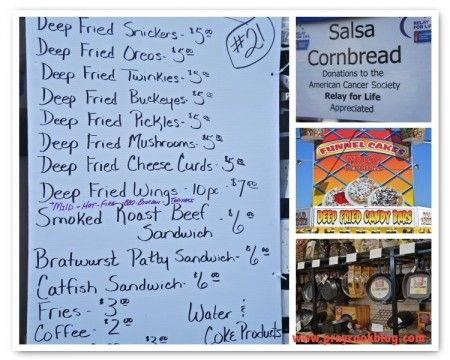 Deep Fried Snickers - $5.00
#21
Deep Fried Oreos - $5.00
Deep Fried Twinkies - $5.00
Deep Fried Buckeyes - $5.00
Deep Fried Pickles - $5.00
Deep Fried Mushrooms - $5.00
Deep Fried Cheese Curds - $5.00
Deep Fried Wings - 10pc. $7.00
Smoked Roast Beef
Sandwich - $6.00
Bratwurst Patty Sandwich - $6.00
Catfish Sandwich - $6.00
Fries - $3.00
Coffee - $2.00
Water &
Coke Products
Salsa
Cornbread
Donations to the
American Cancer Society
Relay for Life
Appreciated
FUNNEL CAKES
DEEP FRIED CANDY BARS
www.prepunkblog.com